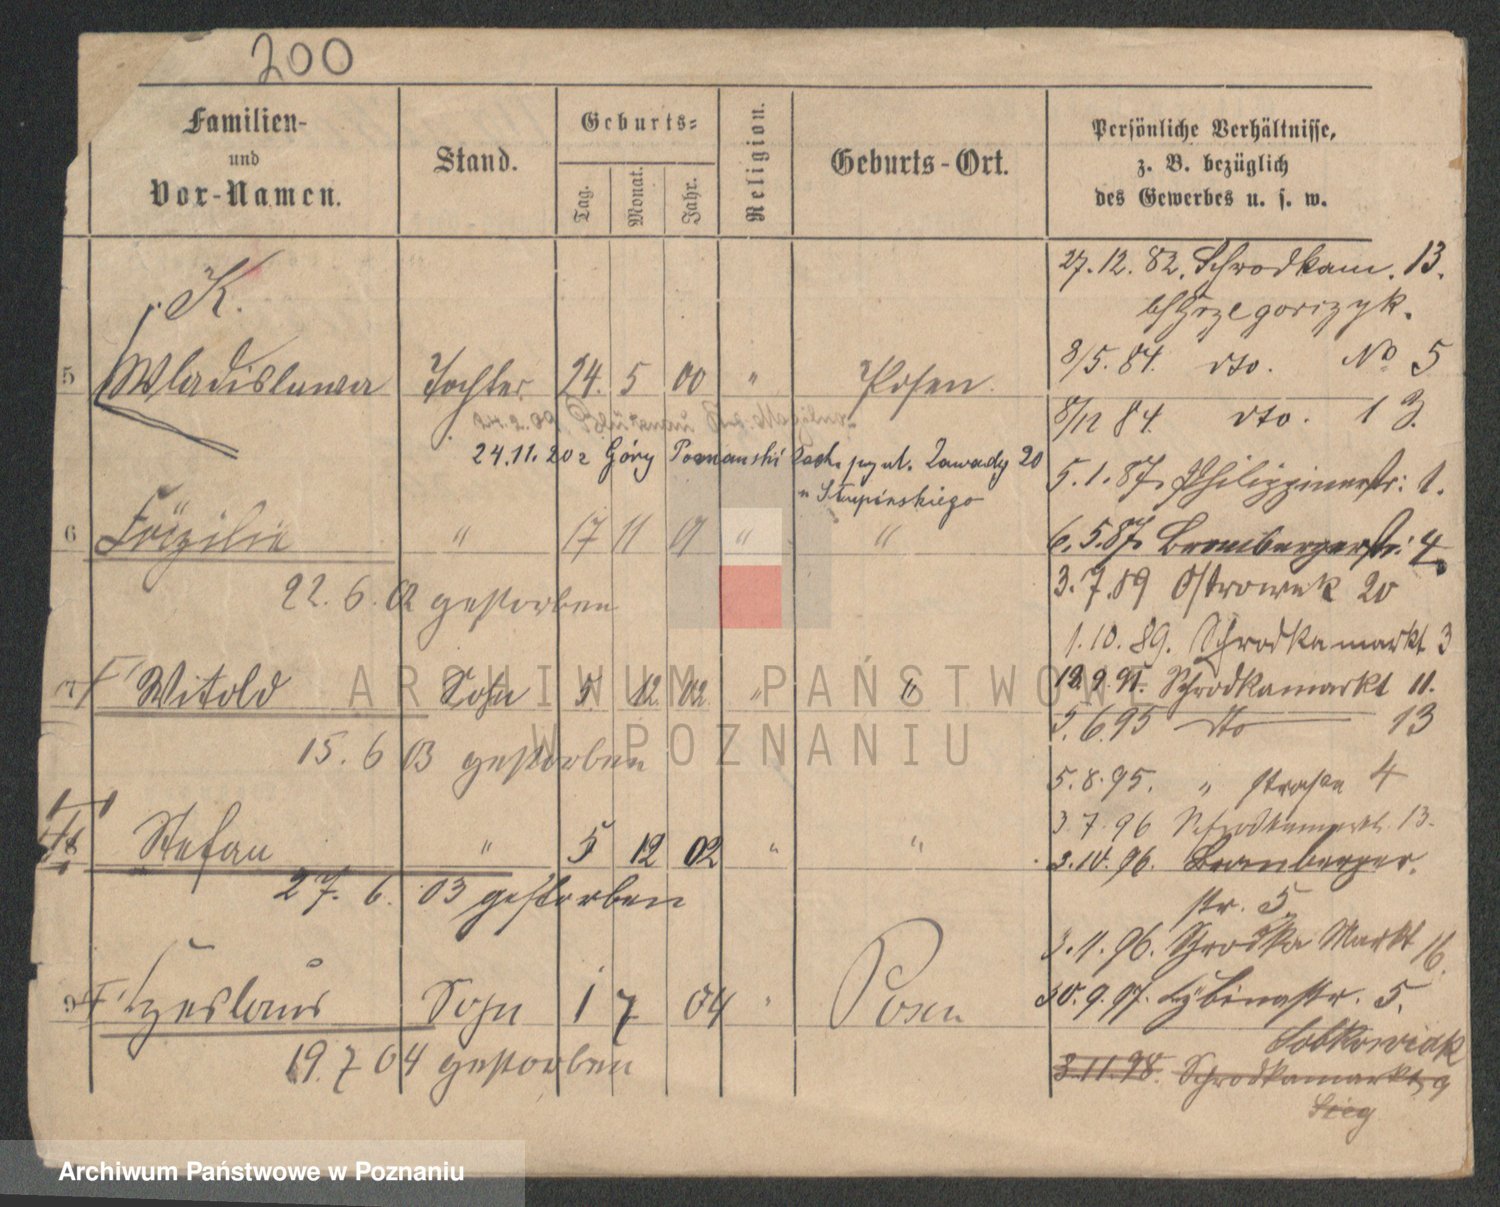 200
Familien-
und
Vor-Namen.
Stand.
Geburts-
Tag.
Monat.
Jahr.
Religion.
Geburts-Ort.
Persönliche Verhältnisse,
z. B. bezüglich
des Gewerbes u. s. w.
K.
5 Wladislawa Tochter 24. 5 00 " Posen.
24.11.20 z Góry Poznański Zawady 20
" Słupińskiego
6 Cäzilie " 17 11 01 " "
22. 6. 02 gestorben
7 Witold Sohn 5. 12 02 " "
15. 6 03 gestorben
8 Stefan " 5 12 02 " "
27. 6. 03 gestorben
9 Czeslaus Sohn 1 7 04 " Posen
19. 7 04 gestorben
27.12.82. Schrodkam. 13.
b/Grzegorczyk.
8/5.84. dto. No 5
8/12 84. dto. 13.
5.1.87. Philippinerstr: 1.
6.5.87. Brombergerstr: 4.
3.7.89 Ostrowek 20
1.10.89. Schrodkamarkt 3
Schrodkamarkt 11.
5.6.95 dto 13
5.8.95. " strasse 4
3.7.96 Schrodkamarkt 13.
3.10.96. Bromberger.
str. 5.
3.11.96. Schrodka Markt 16.
30.9.97. Cybinastr. 5.
Sobkowiak
3.11.98. Schrodkamarkt 9
ARCHIWUM PAŃSTWOWE
W POZNANIU
Archiwum Państwowe w Poznaniu